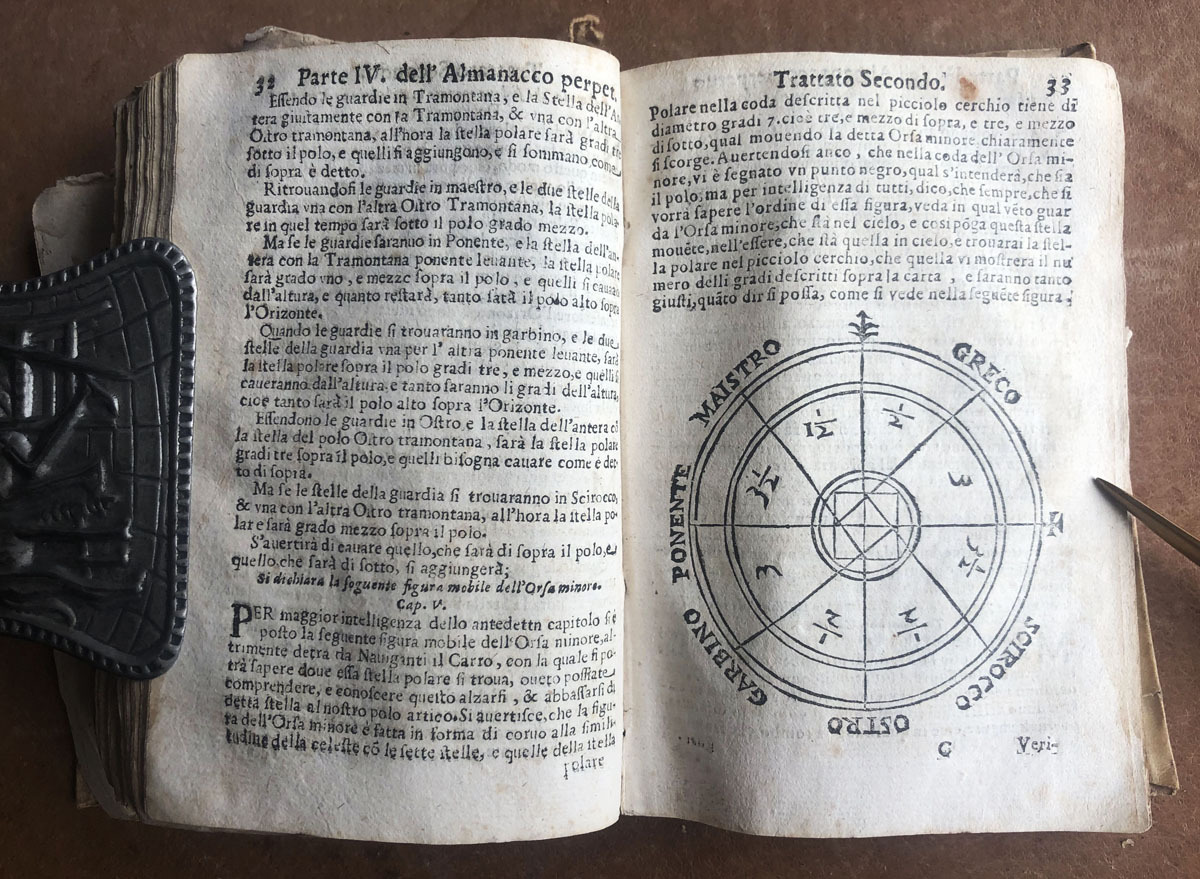 32 Parte IV. dell' Almanacco perpet.
Essendo le guardie in Tramontana, e la Stella dell'An
tera giuitamente con la Tramontana, & vna con l'altra
Oitro tramontana, all'hora la stella polare sarà gradi tre
sotto il polo, e quelli si aggiungono, e si sommano, come
di sopra è detto.
Ritrouandosi le guardie in maestro, e le due stelle della
guardia vna con l'altra Oitro Tramontana, la stella pola-
re in quel tempo sarà sotto il polo grado mezzo.
Ma se le guardie saranuo in Ponente, e la stella dell'an-
tera con la Tramontana ponente leuante, la stella polare
sarà grado vno, e mezze sopra il polo, e quelli si cauano
dall'altura, e quanto restarà, tanto satà il polo alto sopra
l'Orizonte.
Quando le guardie si trouaranno in garbino, e le due
stelle della guardia vna per l'altra ponente leuante, sarà
la stella polare sopra il polo gradi tre, e mezzo, e quelli si
caueranno dall'altura, e tanto saranno li gradi dell'altura,
cioè tanto sarà il polo alto sopra l'Orizonte.
Essendono le guardie in Ostro, e la stella dell'antera cō
la stella del polo Oitro tramontana, sarà la stella polare
gradi tre sopra il polo, e quelli bisogna cauare come è det-
to di sopra.
Ma se le stelle della guardia si trouaranno in Scirocco,
& vna con l'altra Oitro tramontana, all'hora la stella po-
lare sarà grado mezo sopra il polo.
S'auertirà di cauare quello, che sarà di sopra il polo, e
quello, che sarà di sotto, si aggiungerà;
Si dichiara la seguente figura mobile dell'Orsa minore.
Cap. V.
PER maggior intelligenza dello antedettn capitolo si è
posto la seguente figura mobile dell'Orsa minore, al-
trimente detra da Nauiganti il Carro, con la quale si po-
trà sapere doue essa stella polare si troua, oueto possiate
comprendere, e conoscere questo alzarsi, & abbassarsi di
detta stella al nostro polo artico. Si auertisce, che la figu-
ra dell'Orsa minore è fatta in forma di coruo alla simili-
tudine della celeste cō le sette stelle, e quelle della stella
polare
Trattato Secondo. 33
Polare nella coda descritta nel picciolo cerchio tiene di
diametro gradi 7. cioè tre, e mezzo di sopra, e tre, e mezzo
di sotto, qual mouendo la detta Orsa minore chiaramente
si scorge. Auertendosi anco, che nella coda dell' Orsa mi-
nore, vi è segnato vn punto negro, qual s'intenderà, che sia
il polo, ma per intelligenza di tutti, dico, che sempre, che si
vorrà sapere l'ordine di essa figura, veda in qual vēto guar
da l'Orsa minore, che stà nel cielo, e così pōga questa stella
mouēte, nell'essere, che stà quella in cielo, e trouarai la stel-
la polare nel picciolo cerchio, che quella vi mostrerà il nu
mero delli gradi descritti sopra la carta, e saranno tanto
giusti, quāto dir si possa, come si vede nella seguēte figura.
MAISTRO
GRECO
1½
½
3½
3
PONENTE
3
3½
½
½
GARBINO
SCIROCCO
OSTRO
C Veri-